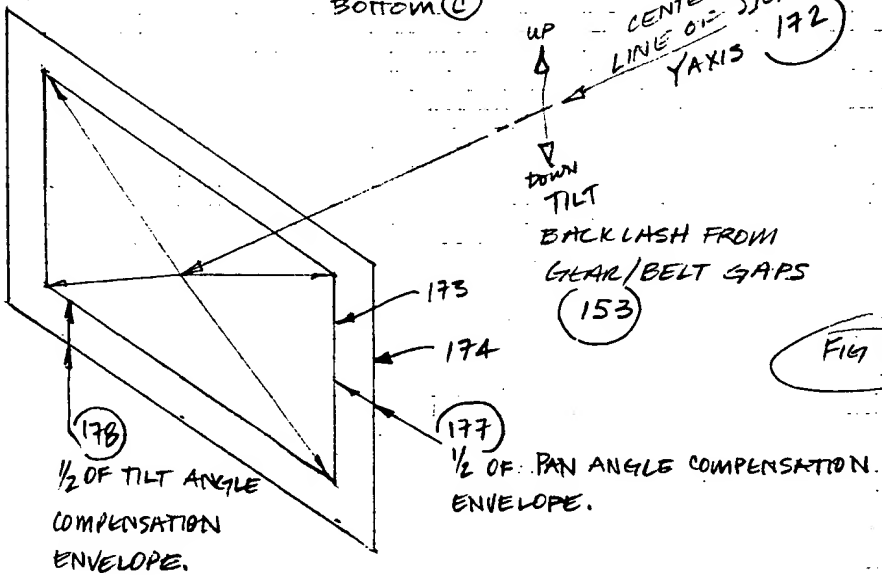 BOTTOM C
CENTE
LINE OF
YAXIS 172
UP
DOWN
TILT
BACKLASH FROM
GEAR/BELT GAPS
153
173
174
FIG
178
1/2 OF TILT ANGLE
COMPENSATION
ENVELOPE.
177
1/2 OF PAN ANGLE COMPENSATION
ENVELOPE.